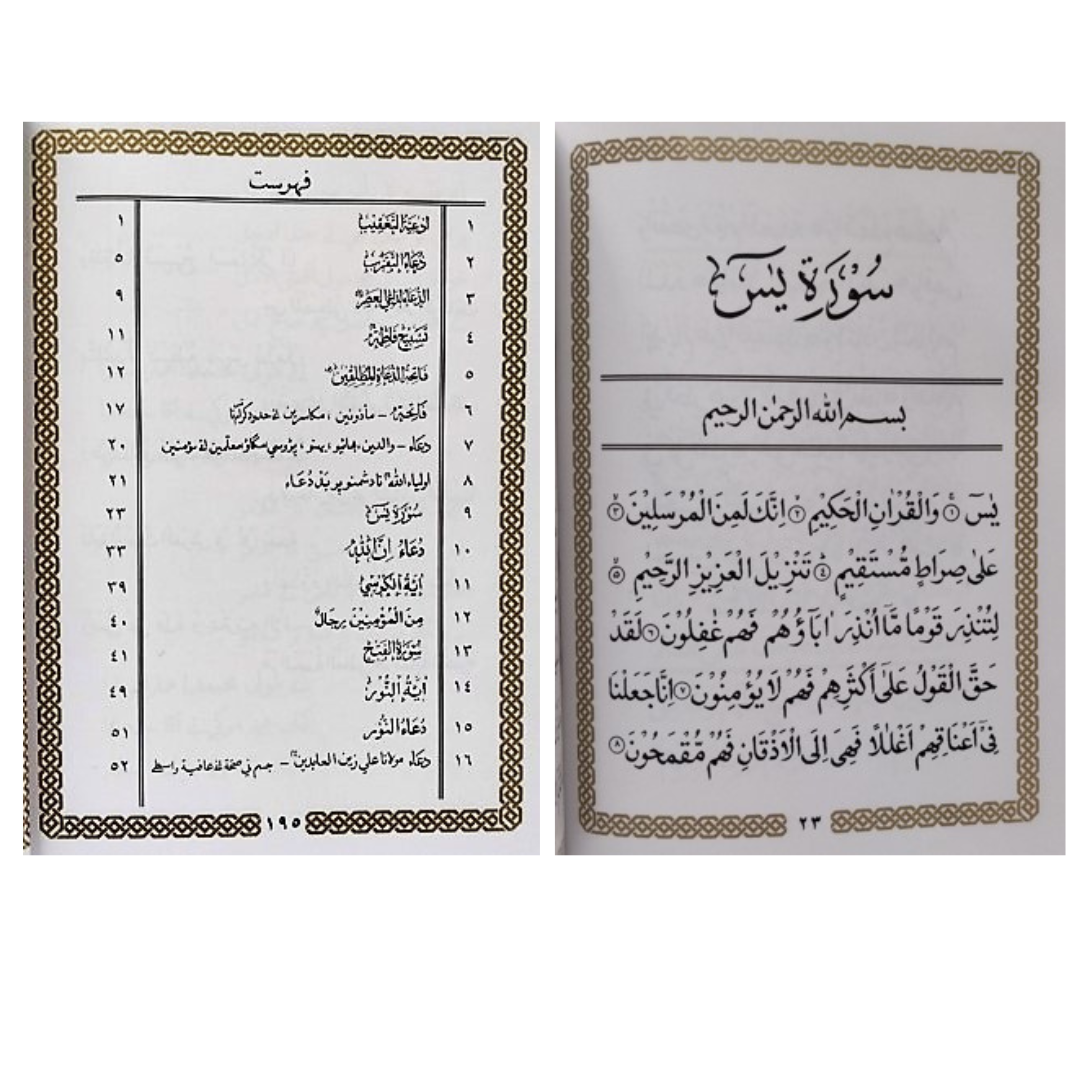 فهرست
١ ادعية التعقيب ١
٢ دعاء التقرب ٥
٣ الدعاء لداعي العصر ٩
٤ تسبيح فاطمة ١١
٥ فاتحة الدعاة المطلقين ١٢
٦ فاتحة - مأذونين، مكاسرين نے حدود كرام نا ١٧
٧ دعاء - والدين، بهائيو، بهنو، پڑوسي سگاؤ معلمين نے مؤمنين ٢٠
٨ اولياء الله نا دشمنو پر بد دُعاء ٢١
٩ سُوْرَة يٰسٓ ٢٣
١٠ دُعَاءُ اِنَّا لِلّٰهِ ٣٣
١١ اٰيَةُ الْكُرْسِيّ ٣٩
١٢ مِنَ الْمُؤْمِنِيْنَ رِجَالٌ ٤٠
١٣ سُوْرَةُ الْفَتْحِ ٤١
١٤ اٰيَةُ النُّوْرِ ٤٩
١٥ دُعَاءُ النُّوْر ٥١
١٦ دعاء مولانا علي زين العابدين - جسم ني صحة نے عافية واسطے ٥٢
١٩٥
سُوْرَة يٰسٓ
بسم الله الرحمٰن الرحيم
يٰسٓ ١ وَالْقُرْاٰنِ الْحَكِيْمِ ٢ اِنَّكَ لَمِنَ الْمُرْسَلِيْنَ ٣
عَلٰى صِرَاطٍ مُّسْتَقِيْمٍ ٤ تَنْزِيْلَ الْعَزِيْزِ الرَّحِيْمِ ٥
لِتُنْذِرَ قَوْمًا مَّآ اُنْذِرَ اٰبَآؤُهُمْ فَهُمْ غٰفِلُوْنَ ٦ لَقَدْ
حَقَّ الْقَوْلُ عَلٰٓى اَكْثَرِهِمْ فَهُمْ لَا يُؤْمِنُوْنَ ٧ اِنَّا جَعَلْنَا
فِيْٓ اَعْنَاقِهِمْ اَغْلٰلًا فَهِيَ اِلَى الْاَذْقَانِ فَهُمْ مُّقْمَحُوْنَ ٨
٢٣